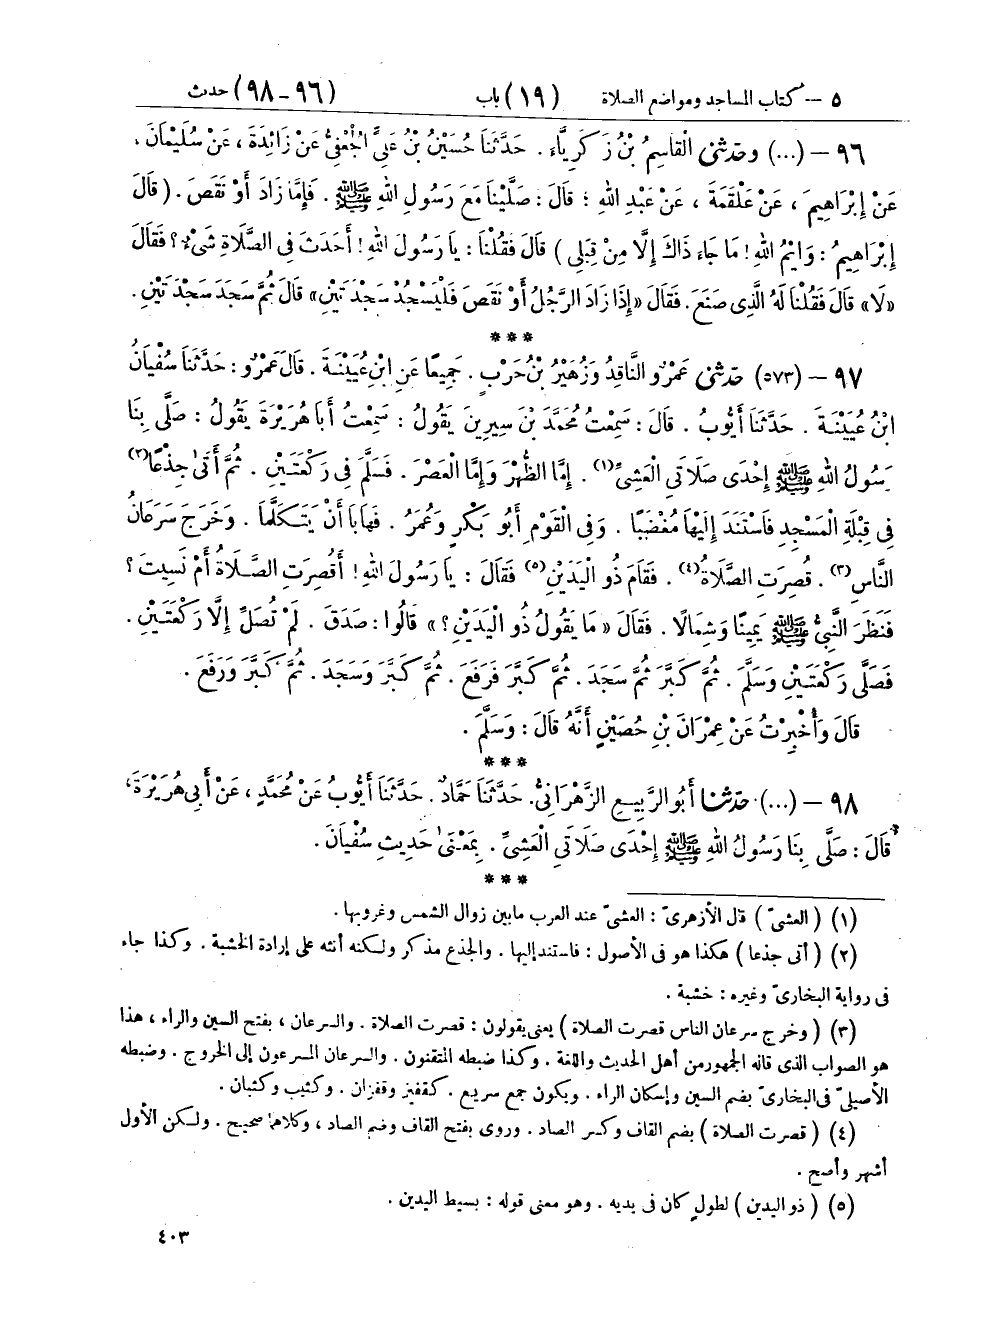 ٥ – كتاب المساجد ومواضع الصلاة (١٩) باب (٩٦ – ٩٨) حدث
٩٦ – (...) وحَدَّثَنِي الْقَاسِمُ بْنُ زَكَرِيَّاءَ. حَدَّثَنَا حُسَيْنُ بْنُ عَلِيٍّ الْجُعْفِيُّ عَنْ زَائِدَةَ، عَنْ سُلَيْمَانَ،
عَنْ إِبْرَاهِيمَ، عَنْ عَلْقَمَةَ، عَنْ عَبْدِ اللهِ؛ قَالَ: صَلَّيْنَا مَعَ رَسُولِ اللهِ ﷺ. فَإِمَّا زَادَ أَوْ نَقَصَ. (قَالَ
إِبْرَاهِيمُ: وَايْمُ اللهِ! مَا جَاءَ ذَاكَ إِلَّا مِنْ قِبَلِي) قَالَ فَقُلْنَا: يَا رَسُولَ اللهِ! أَحَدَثَ فِي الصَّلَاةِ شَيْءٌ؟ فَقَالَ
«لَا» قَالَ فَقُلْنَا لَهُ الَّذِي صَنَعَ. فَقَالَ «إِذَا زَادَ الرَّجُلُ أَوْ نَقَصَ فَلْيَسْجُدْ سَجْدَتَيْنِ» قَالَ ثُمَّ سَجَدَ سَجْدَتَيْنِ.
***
٩٧ – (٥٧٣) حَدَّثَنِي عَمْرٌو النَّاقِدُ وَزُهَيْرُ بْنُ حَرْبٍ. جَمِيعًا عَنِ ابْنِ عُيَيْنَةَ. قَالَ عَمْرٌو: حَدَّثَنَا سُفْيَانُ
ابْنُ عُيَيْنَةَ. حَدَّثَنَا أَيُّوبُ. قَالَ: سَمِعْتُ مُحَمَّدَ بْنَ سِيرِينَ يَقُولُ: سَمِعْتُ أَبَا هُرَيْرَةَ يَقُولُ: صَلَّى بِنَا
رَسُولُ اللهِ ﷺ إِحْدَى صَلَاتَيِ الْعَشِيِّ(١). إِمَّا الظُّهْرَ وَإِمَّا الْعَصْرَ. فَسَلَّمَ فِي رَكْعَتَيْنِ. ثُمَّ أَتَى جِذْعًا(٢)
فِي قِبْلَةِ الْمَسْجِدِ فَاسْتَنَدَ إِلَيْهَا مُغْضَبًا. وَفِي الْقَوْمِ أَبُو بَكْرٍ وَعُمَرُ. فَهَابَا أَنْ يَتَكَلَّمَا. وَخَرَجَ سَرَعَانُ
النَّاسِ(٣). قُصِرَتِ الصَّلَاةُ(٤). فَقَامَ ذُو الْيَدَيْنِ(٥) فَقَالَ: يَا رَسُولَ اللهِ! أَقُصِرَتِ الصَّلَاةُ أَمْ نَسِيتَ؟
فَنَظَرَ النَّبِيُّ ﷺ يَمِينًا وَشِمَالًا. فَقَالَ «مَا يَقُولُ ذُو الْيَدَيْنِ؟» قَالُوا: صَدَقَ. لَمْ تُصَلِّ إِلَّا رَكْعَتَيْنِ.
فَصَلَّى رَكْعَتَيْنِ وَسَلَّمَ. ثُمَّ كَبَّرَ ثُمَّ سَجَدَ. ثُمَّ كَبَّرَ فَرَفَعَ. ثُمَّ كَبَّرَ وَسَجَدَ. ثُمَّ كَبَّرَ وَرَفَعَ.
قَالَ وَأُخْبِرْتُ عَنْ عِمْرَانَ بْنِ حُصَيْنٍ أَنَّهُ قَالَ: وَسَلَّمَ.
***
٩٨ – (...) حَدَّثَنَا أَبُو الرَّبِيعِ الزَّهْرَانِيُّ. حَدَّثَنَا حَمَّادٌ. حَدَّثَنَا أَيُّوبُ عَنْ مُحَمَّدٍ، عَنْ أَبِي هُرَيْرَةَ؛
قَالَ: صَلَّى بِنَا رَسُولُ اللهِ ﷺ إِحْدَى صَلَاتَيِ الْعَشِيِّ. بِمَعْنَى حَدِيثِ سُفْيَانَ.
***
(١) (العشيّ) قال الأزهريّ: العشيّ عند العرب مابين زوال الشمس وغروبها.
(٢) (أتى جذعا) هكذا هو فى الأصول: فاستند إليها. والجذع مذكر ولكنه أنثه على إرادة الخشبة. وكذا جاء
فى رواية البخارىّ وغيره: خشبة.
(٣) (وخرج سرعان الناس قصرت الصلاة) يعنى يقولون: قصرت الصلاة. والسرعان، بفتح السين والراء، هذا
هو الصواب الذى قاله الجمهور من أهل الحديث واللغة. وكذا ضبطه المتقنون. والسرعان المسرعون إلى الخروج. وضبطه
الأصيلىّ فى البخارىّ بضم السين وإسكان الراء. ويكون جمع سريع. كقفيز وقفزان. وكثيب وكثبان.
(٤) (قصرت الصلاة) بضم القاف وكسر الصاد. وروى بفتح القاف وضم الصاد، وكلاهما صحيح. ولكن الأول
أشهر وأصح.
(٥) (ذو اليدين) لطولٍ كان فى يديه. وهو معنى قوله: بسيط اليدين.
٤٠٣